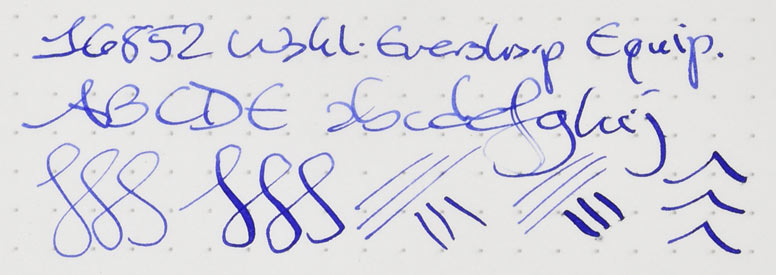 16852 Wahl-Eversharp Equip.
ABCDE abcdefghij